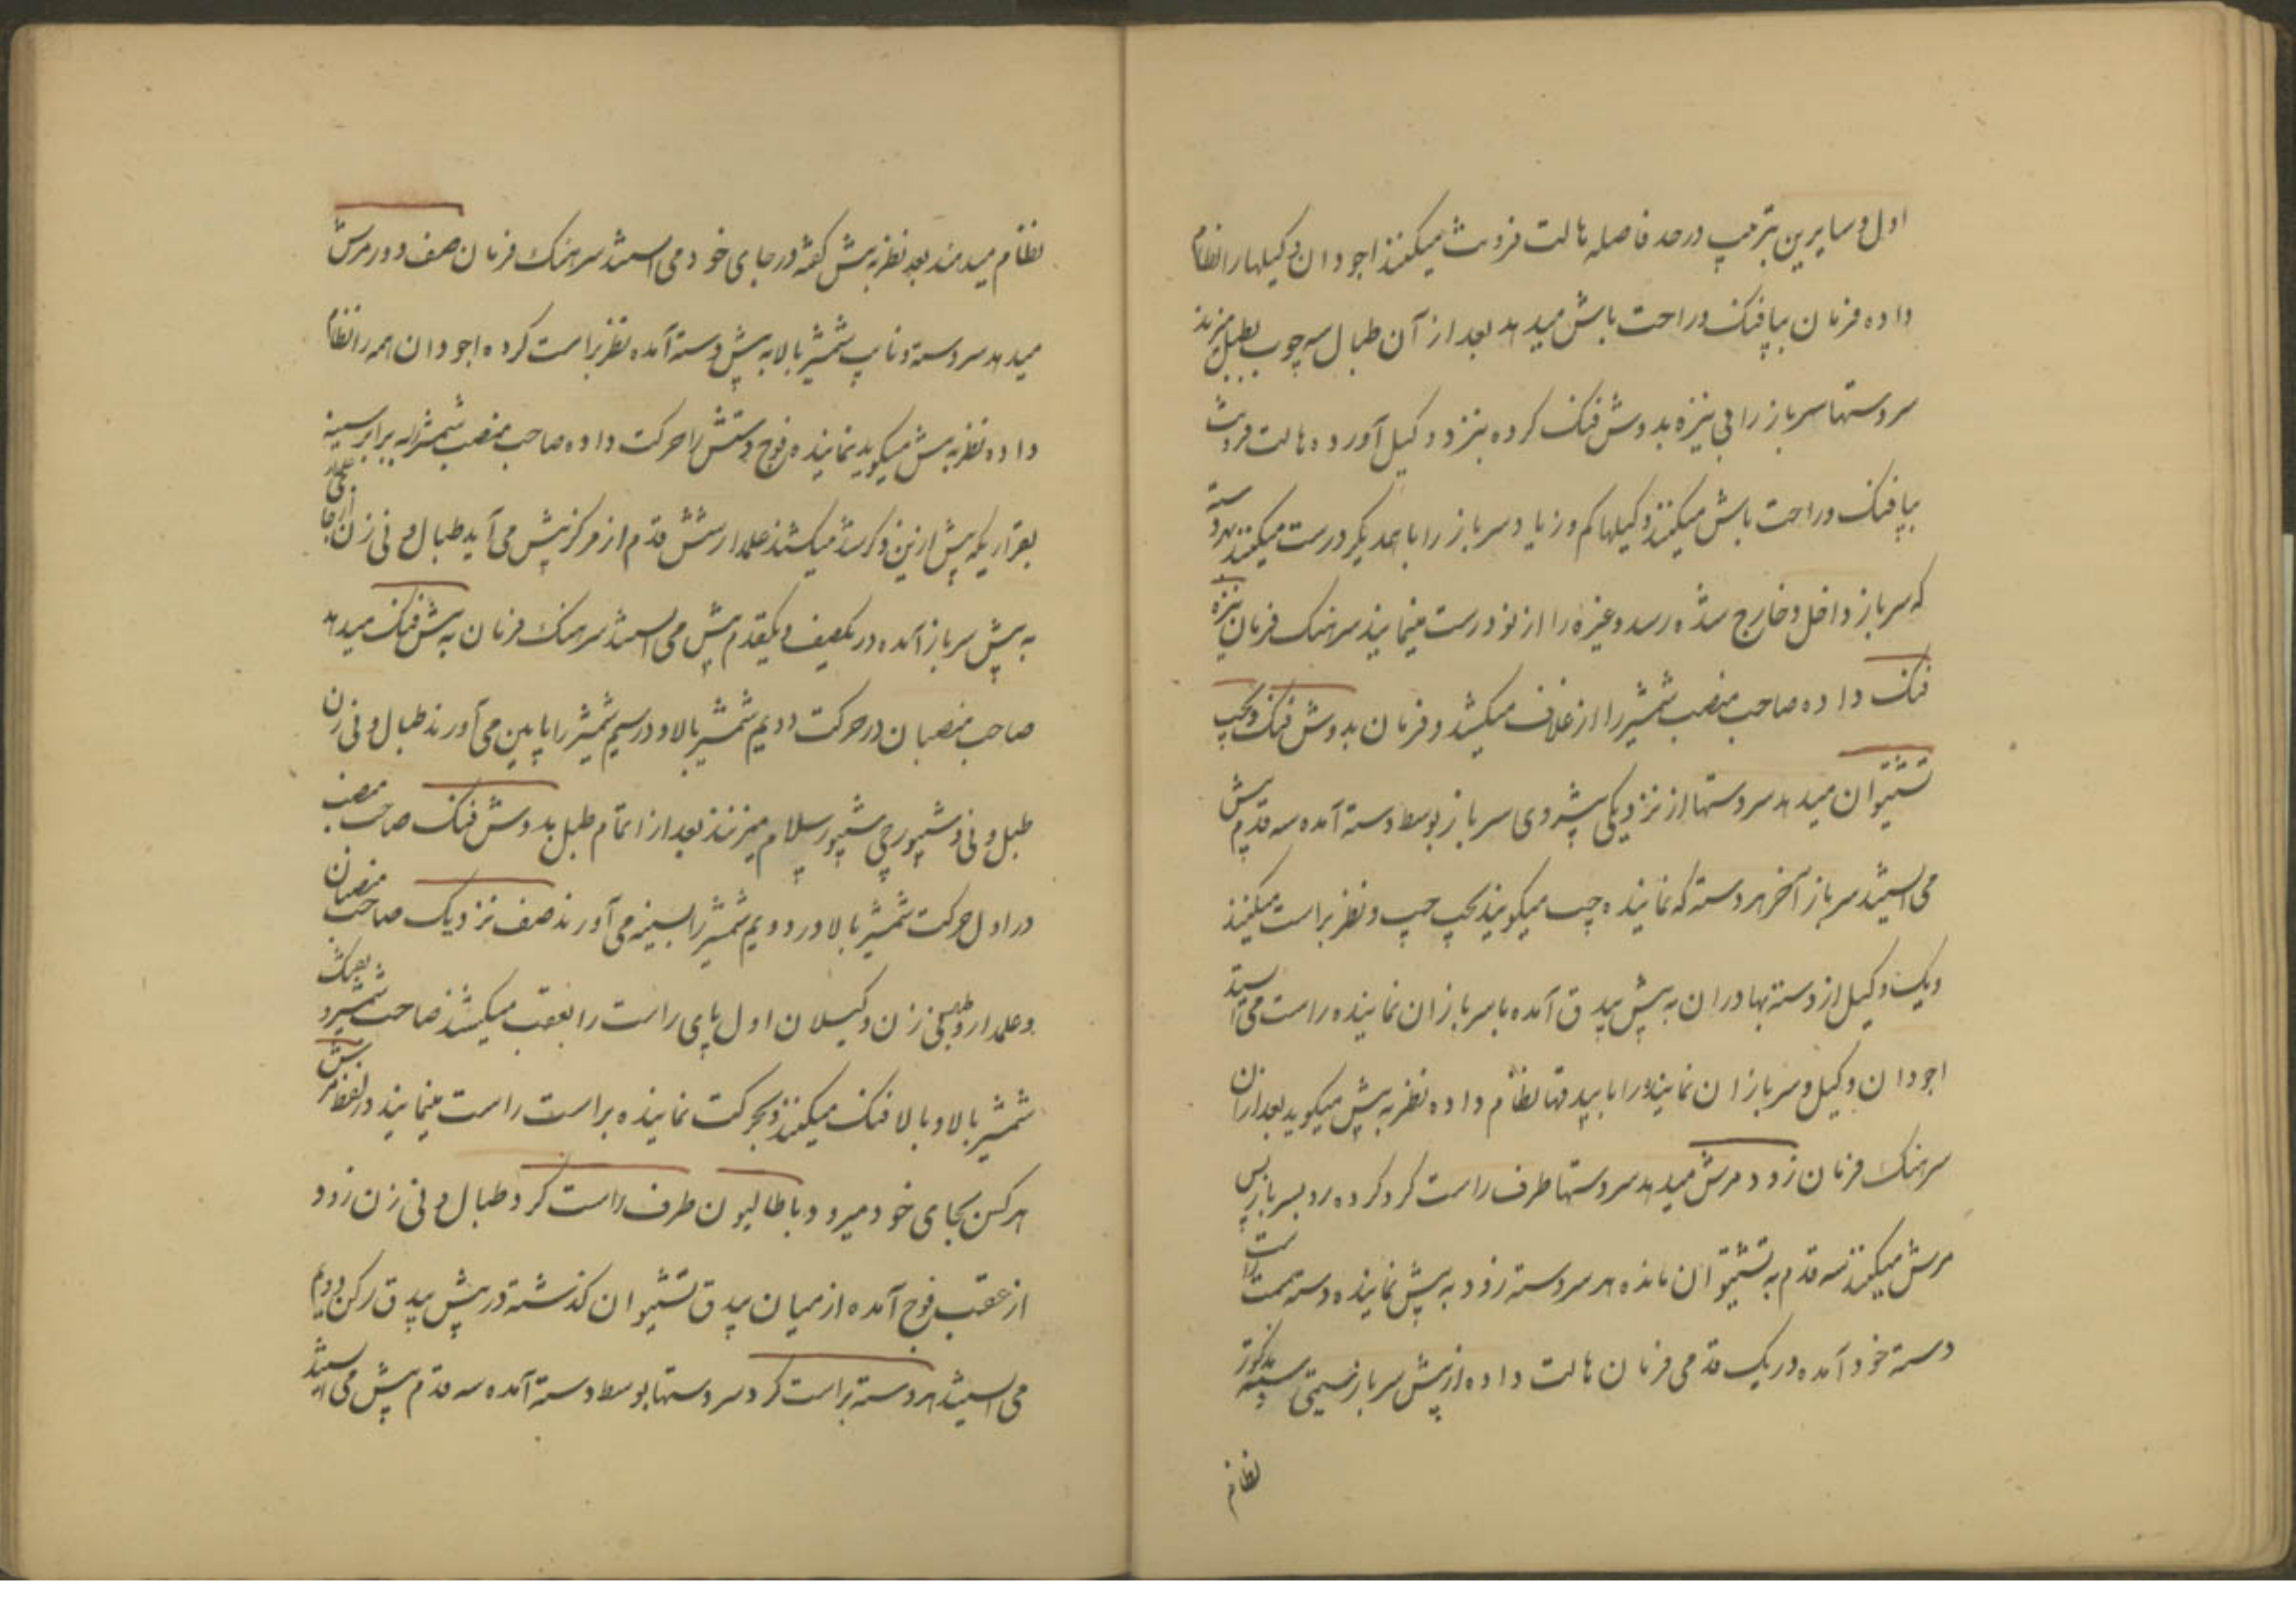 اول و سایرین بترتیب در حد فاصله هالت فرونت میکنند اجودان وکیلها را نظام
داده فرمان بپافنک و راحت باش میدهد بعد از آن طبال سه چوب بطبل میزند
سردستها سرباز را بی نیزه بدوش فنک کرده بنزد وکیل آورده هالت فرونت
بپافنک و راحت باش میکنند وکیلها کم و زیاد سرباز را با همدیکر درست میکنند بهر دسته
که سرباز داخل و خارج شده رسد و غیره را از نو درست مینمایند سرهنک فرمان نیزه
فنک داده صاحب منصب شمشیر را از غلاف میکشد و فرمان بدوش فنک و بچپ
تشتیوان میدهد سردستها از نزدیکی پیشروی سرباز بوسط دسته آمده سه قدم پیش
می ایستد سرباز آخر هر دسته که نماینده چپ میکویند بچپ چپ و نظر براست میکنند
و یک وکیل از دسته بهادران به پیش بیدق آمده با سربازان نماینده راست می ایستد
اجودان وکیل و سربازان نماینده را با بیدقها نظام داده نظر به پیش میکوید بعد از آن
سرهنک فرمان زود مرش میدهد سردستها طرف راست کرد کرده رو بسرباز پس
مرش میکنند سه قدم به تشتیوان مانده هر سردسته زود به پیش نماینده دسته سمت راست
دسته خود آمده در یک قدمی فرمان هالت داده از پیش سرباز دسته مذکور
نظام
نظام میدهند بعد نظر به پیش کفته در جای خود می ایستند سرهنک فرمان صف دور مرش
میدهد سردسته و نایب شمشیر بالا به پیش دسته آمده نظر براست کرده اجودان همه را نظام
داده نظر به پیش میکوید نماینده فوج دستش را حرکت داده صاحب منصب شمشیر را به برابر سینه
بقراریکه پیش از این ذکر شد میکشند علمدار شش قدم از مرکز پیش می آید طبال و نی زن از جای
به پیش سرباز آمده در یکصف و یکقدم پیش می ایستد سرهنک فرمان به پیش فنک میدهد
صاحب منصبان در حرکت دویم شمشیر بالا و در سیم شمشیر را پایین می آورند طبال و نی زن
طبل و نی و شیپورچی شیپور سلام میزنند بعد از اتمام طبل بدوش فنک صاحب منصب
در اول حرکت شمشیر بالا در دویم شمشیر را بسینه می آورند صف نزدیک صاحب منصبان
و علمدار و طبل نی زن و وکیلان اول پای راست را بعقب میکشند صاحب شمشیر و
شمشیر بالا و بالا فنک میکنند و بحرکت نماینده براست راست مینمایند در لفظ مرش
هر کس بجای خود میرود باطالیون طرف راست کرد طبال و نی زن زود
از عقب فوج آمده از میان بیدق تشتیوان کذشته در پیش بیدق رکن دویم
می ایستد هر دسته براست کرد سردستها بوسط دسته آمده سه قدم پیش می ایستد